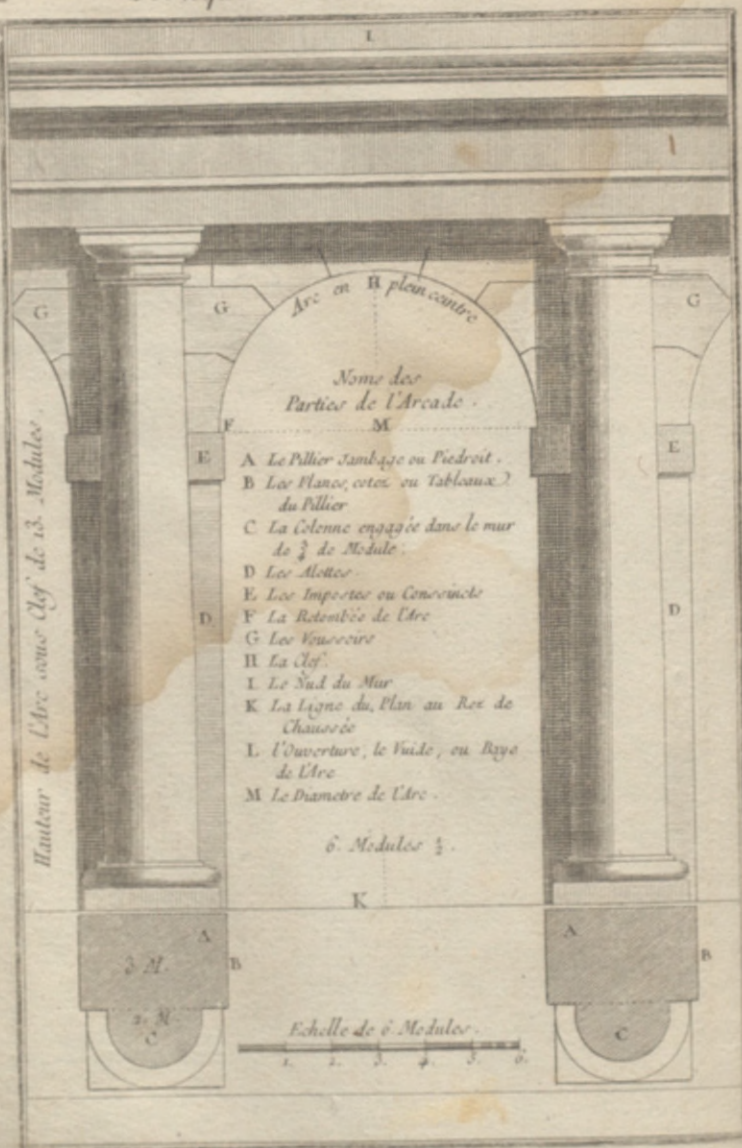 I
G
G
G
Arc en H plein ceintre
Noms des
Parties de l'Arcade.
F
M
E
E
A Le Pillier Jambage ou Piedroit.
B Les Flancs, cotez ou Tableaux
du Pillier
C La Colonne engagée dans le mur
de ¾ de Module.
D Les Alettes.
E Les Impostes ou Coussinets
F La Retombée de l'Arc
G Les Voussoirs
H La Clef.
I Le Nud du Mur
K La Ligne du Plan au Rez de
Chaussée
L l'Ouverture, le Vuide, ou Baye
de l'Arc
M Le Diametre de l'Arc.
D
D
Hauteur de l'Arc sous Clef de 13. Modules.
6. Modules ½.
K
A
3. M.
B
2. M.
C
A
B
C
Echelle de 6. Modules.
1. 2. 3. 4. 5. 6.